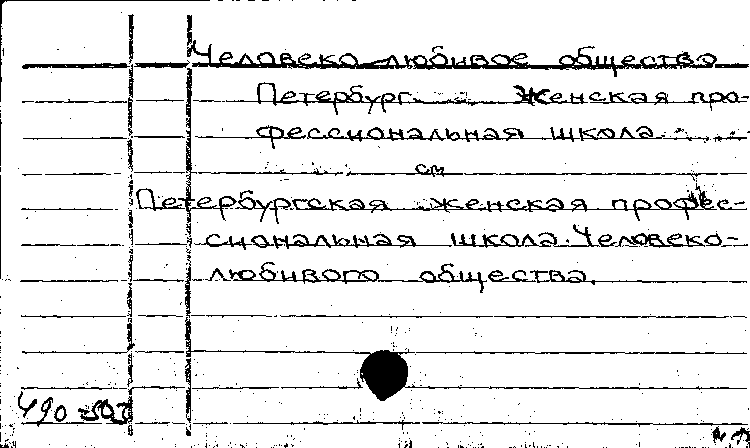 Человеко-любивое общество
Петербург. Женская про-
фессиональная школа.
см
Петербургская женская профес-
сиональная школа. Человеко-
любивого общества.